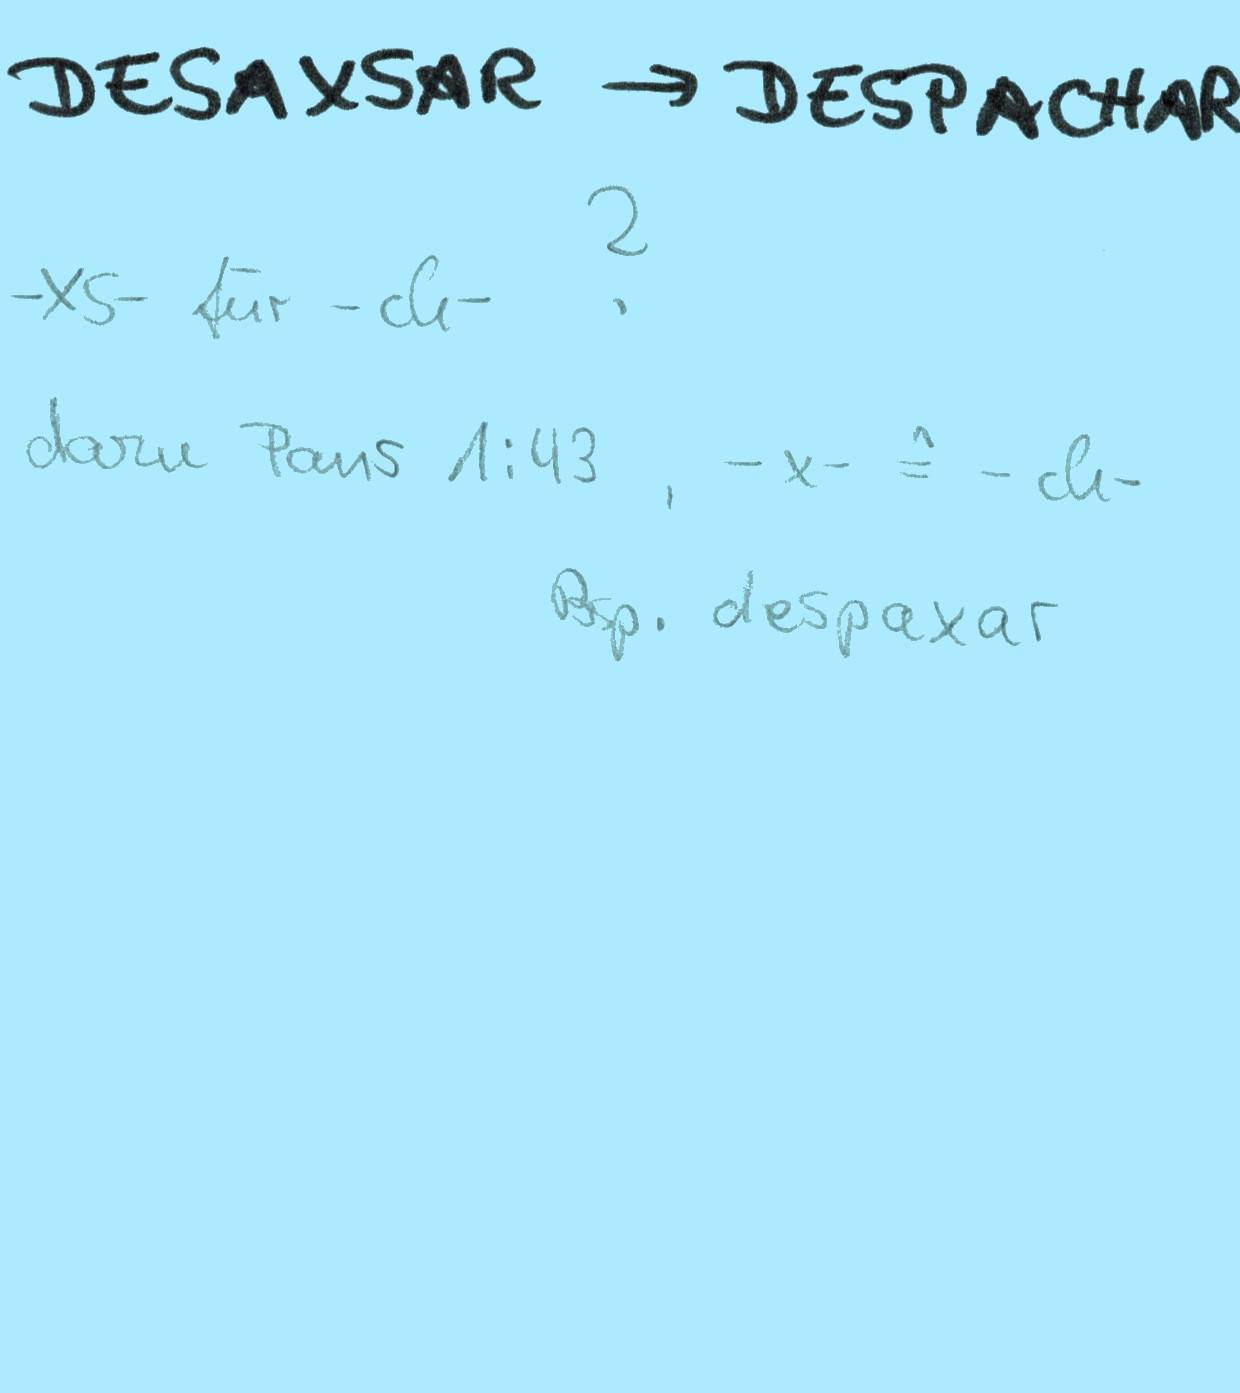 DESAXSAR → DESPACHAR
?
-XS- für -ch-
dazu Pans 1:43, -x- ≙ -ch-
Bsp. despaxar